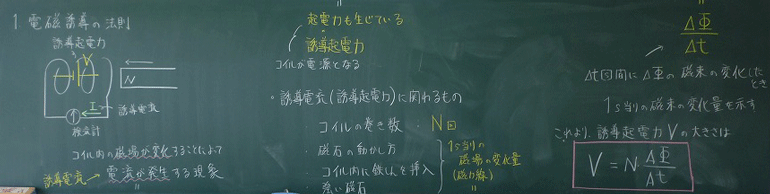 1. 電磁誘導の法則
誘導起電力
V
N
I
誘導電流
検流計
コイル内の磁場が変化することによって
誘導電流 → 電流が発生する現象
〃
〃
起電力も生じている
誘導起電力
コイルが電源となる
・誘導電流(誘導起電力)に関わるもの
・コイルの巻き数・N回
・磁石の動かし方
・コイル内に鉄しんを挿入
・強い磁石
1s当りの
磁場の変化量
(磁力線)
〃
〃
ΔΦ
Δt
Δt[s]間にΔΦの磁束の変化したとき
1s当りの磁束の変化量を示す
これより、誘導起電力Vの大きさは
V = N・ΔΦ/Δt